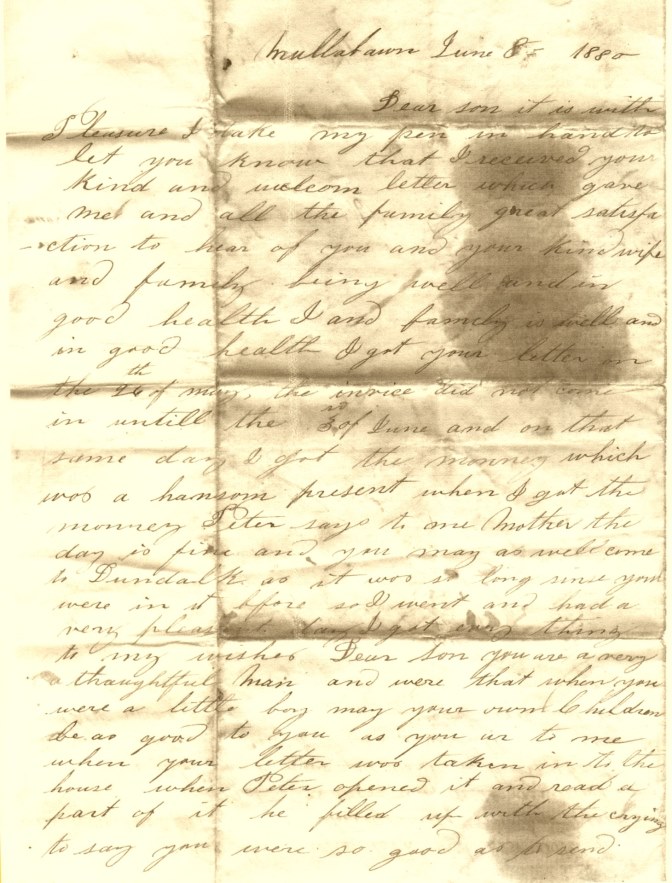 Mullabawn June 8th 1880
Dear son it is with
Pleasure I take my pen in hand to
let you know that I received your
kind and welcom letter which gave
me and all the family great satisfa
-ction to hear of you and your kind wife
and family being well and in
good health I and family is well and
in good health I got your letter on
the 26th of may, the invoice did not come
in untill the 3rd of June and on that
same day I got the monney which
was a hansom present when I got the
monney Peter says to me Mother the
day is fine and you may as well come
to Dundalk as it was so long since you
were in it bfore so I went and had a
very pleasent day I got every thing
to my wishes Dear son you are a very
a thoughtful man and were that when you
were a little boy may your own Children
be as good to you as you ar to me
when your letter was taken in to the
house when Peter opened it and read a
part of it he filled up with the crying
to say you were so good as to send